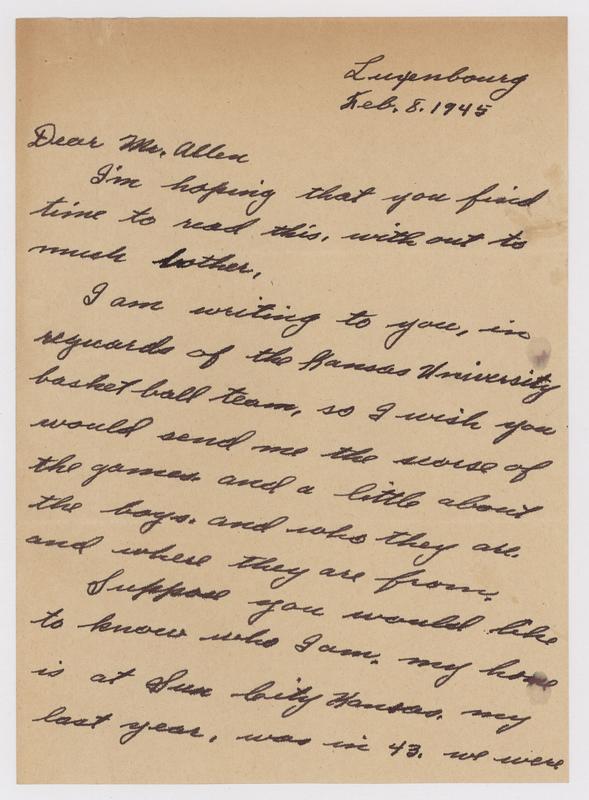 Luxenbourg
Feb. 8. 1945
Dear Mr. Allen
I'm hoping that you find
time to read this, with out to
much bother.
I am writing to you, in
reguards of the Kansas University
basket ball team, so I wish you
would send me the scorse of
the games. and a little about
the boys. and who they are.
and where they are from.
Suppose you would like
to know who I am. my home
is at Sun City Kansas. my
last year, was in 43. we were